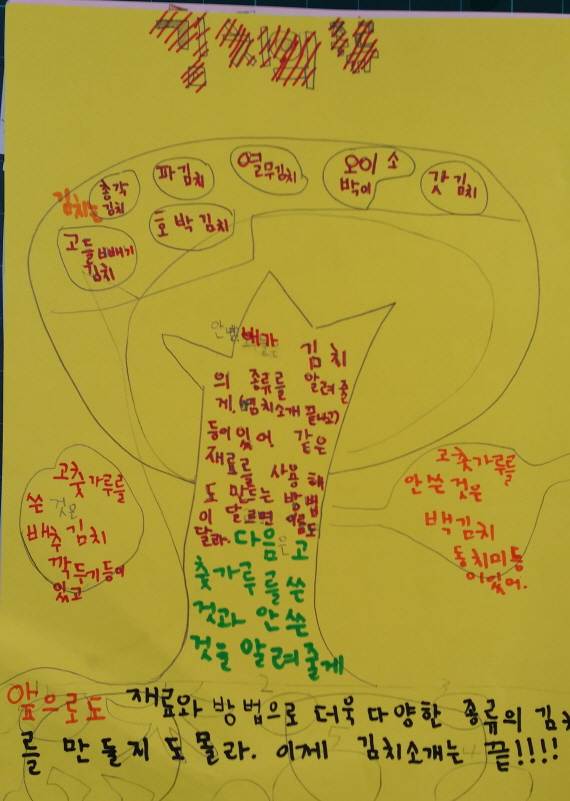 김치는
총각
김치
파김치
열무김치
오이 소
박이
갓 김치
고들빼기
김치
호박김치
김치
의 종류를 알려줄
게.
등이 있어. 같은
재료를 사용해
도 만드는 방법
이 다르면 이름도
달라. 다음은 고
춧가루를 쓴
것과 안 쓴
것을 알려줄게
고춧가루를
쓴 것은
배추김치
깍두기등이
있고
고춧가루를
안 쓴 것은
백김치
동치미등
이있어.
앞으로도 재료와 방법으로 더욱 다양한 종류의 김치
를 만들지도 몰라. 이제 김치소개는 끝!!!!